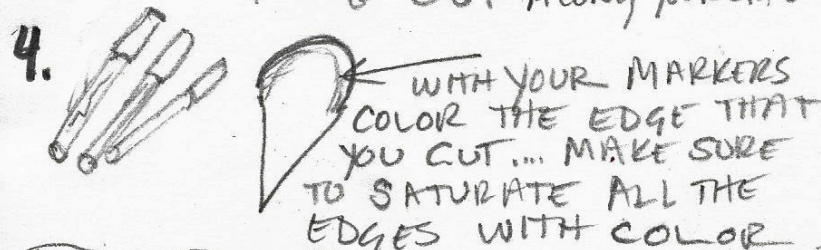 & CUT ALONG
4.
WITH YOUR MARKERS
COLOR THE EDGE THAT
YOU CUT.... MAKE SURE
TO SATURATE ALL THE
EDGES WITH COLOR